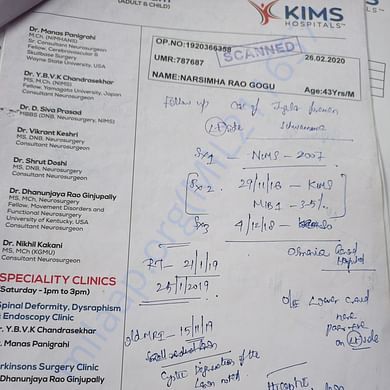 (ADULT & CHILD)
KIMS
HOSPITALS
Dr. Manas Panigrahi
M.Ch (NIMHANS)
Sr. Consultant Neurosurgeon
Fellow, Cerebrovascular &
Skullbase Surgery
Wayne State University, USA
Dr. Y.B.V.K Chandrasekhar
MS, M.Ch. (NIMS)
Fellow, Yamagata University, Japan
Consultant Neurosurgeon
Dr. D. Siva Prasad
MBBS (DNB, Neurosurgery, NIMS)
Dr. Vikrant Keshri
MS, DNB (Neurosurgery)
Consultant Neurosurgeon
Dr. Shrut Doshi
MS, DNB (Neurosurgery)
Consultant Neurosurgeon
Dr. Dhanunjaya Rao Ginjupally
MS, MCh, Neurosurgery
Fellow, Movement Disorders and
Functional Neurosurgery
University of Kentucky, USA
Consultant Neurosurgeon
Dr. Nikhil Kakani
MS, MCh (KGMU)
Consultant Neurosurgeon
SPECIALITY CLINICS
Saturday - 1pm to 3pm)
Spinal Deformity, Dysraphism
Endoscopy Clinic
Y.B.V.K Chandrasekhar
Manas Panigrahi
Parkinsons Surgery Clinic
Dhanunjaya Rao Ginjupally
OP.NO:1920366358
SCANNED
UMR:787687
26.02.2020
NAME:NARSIMHA RAO GOGU
Age:43Yrs/M
Follow up
(Lt) side
Sx1 - NIMS - 2007
Sx2. 29/11/18 - KIMS
MIB1 - 3-5%
Sx3 4/12/18
Osmania
Hospital
RT - 21/1/19
25/1/2019
Old MRI - 15/11/19
O/E Lower
on (Lt) side
Cystic of the
noted
milaap.org